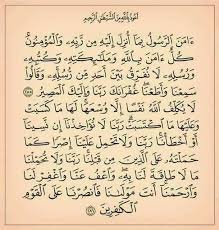 أَعُوذُ بِاللهِ مِنَ الشَّيْطَانِ الرَّجِيمِ
ءَامَنَ ٱلرَّسُولُ بِمَآ أُنزِلَ إِلَيْهِ مِن رَّبِّهِۦ وَٱلْمُؤْمِنُونَ
كُلٌّ ءَامَنَ بِٱللَّهِ وَمَلَٰٓئِكَتِهِۦ وَكُتُبِهِۦ
وَرُسُلِهِۦ لَا نُفَرِّقُ بَيْنَ أَحَدٍ مِّن رُّسُلِهِۦ وَقَالُوا۟
سَمِعْنَا وَأَطَعْنَا غُفْرَانَكَ رَبَّنَا وَإِلَيْكَ ٱلْمَصِيرُ ٢٨٥
لَا يُكَلِّفُ ٱللَّهُ نَفْسًا إِلَّا وُسْعَهَا لَهَا مَا كَسَبَتْ
وَعَلَيْهَا مَا ٱكْتَسَبَتْ رَبَّنَا لَا تُؤَاخِذْنَآ إِن نَّسِينَآ
أَوْ أَخْطَأْنَا رَبَّنَا وَلَا تَحْمِلْ عَلَيْنَآ إِصْرًا كَمَا
حَمَلْتَهُۥ عَلَى ٱلَّذِينَ مِن قَبْلِنَا رَبَّنَا وَلَا تُحَمِّلْنَا
مَا لَا طَاقَةَ لَنَا بِهِۦ وَٱعْفُ عَنَّا وَٱغْفِرْ لَنَا
وَٱرْحَمْنَآ أَنتَ مَوْلَىٰنَا فَٱنصُرْنَا عَلَى ٱلْقَوْمِ
ٱلْكَٰفِرِينَ ٢٨٦